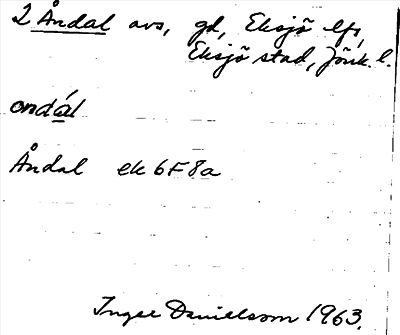 2 Åndal avs, gd, Eksjö lfs,
Eksjö stad, Jönk. l.
ondál
Åndal ek 6F8a
Inger Danielsson 1963.